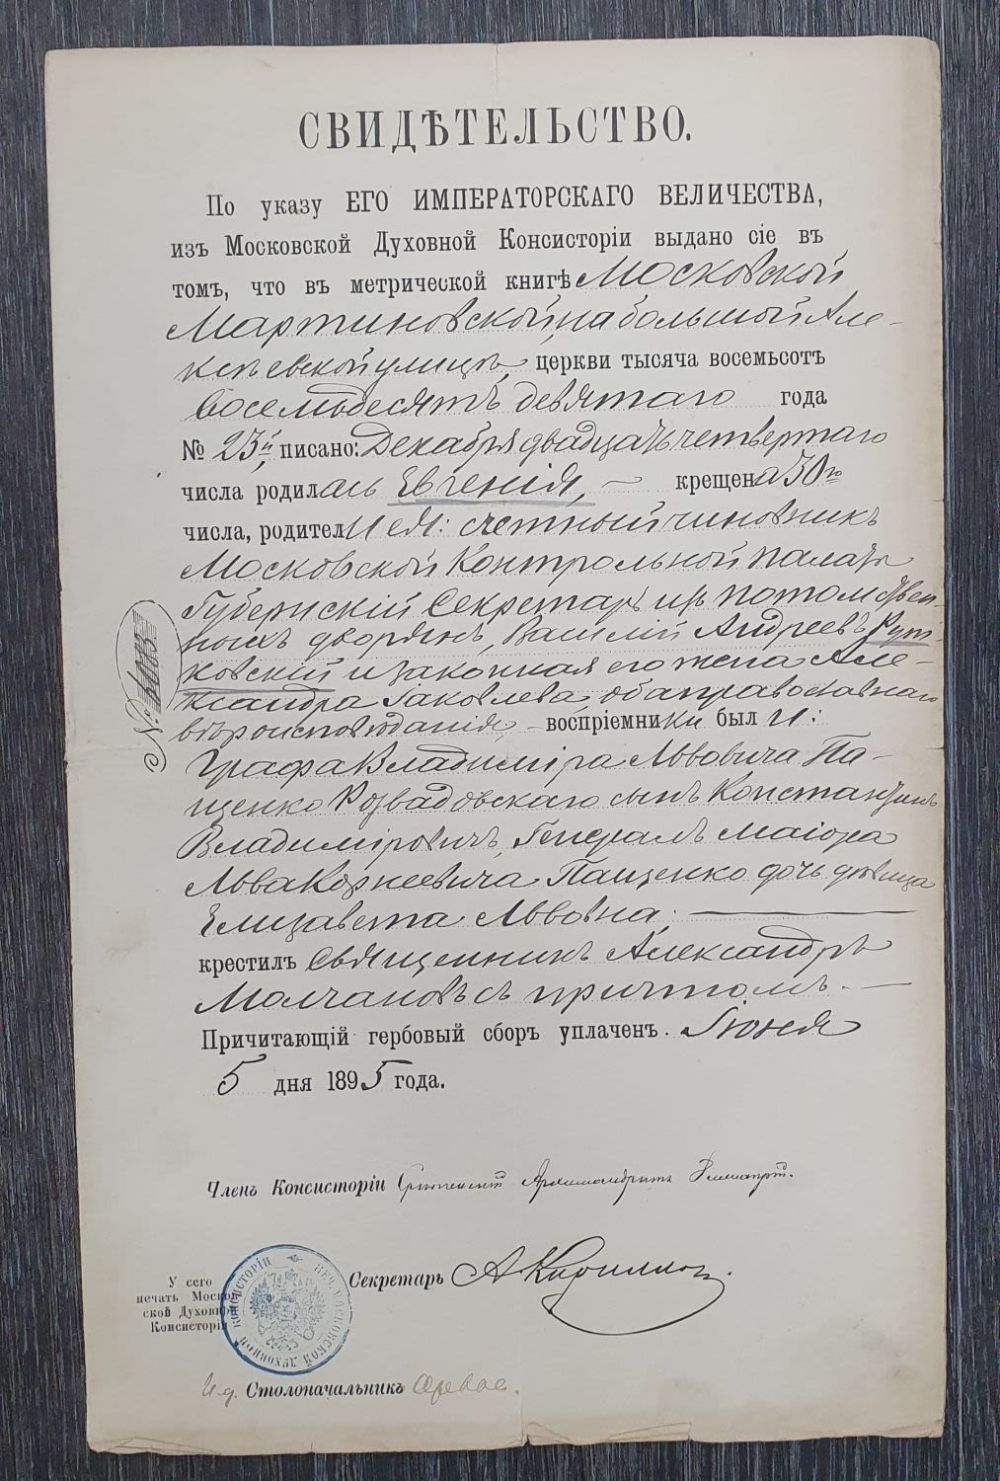 СВИДѢТЕЛЬСТВО.
По указу ЕГО ИМПЕРАТОРСКАГО ВЕЛИЧЕСТВА,
изъ Московской Духовной Консисторіи выдано сіе въ
томъ, что въ метрической книгѣ Московской
Мартиновской, на большой Але-
ксѣевской улицѣ, церкви тысяча восемьсотъ
восемьдесятъ девятаго года
№ 23й, писано: Декабря двадцать четвертаго
числа родилась Евгенія, — крещена 30го
числа, родители ея: счетный чиновникъ
Московской Контрольной палаты
Губернскій Секретарь изъ потомствен-
ныхъ дворянъ, Василій Андреевъ Рут-
ковскій и законная его жена Але-
ксандра Іаковлева, оба православнаго
вѣроисповѣданія, — воспріемники были:
Графа Владиміра Львовича Па-
щенко Розвадовскаго сынъ Константинъ
Владиміровичъ, Генералъ Маіора
Льва Корнеевича Пащенко дочь дѣвица
Елизавета Львовна. —
крестилъ Священникъ Александръ
Молчановъ съ причтомъ. —
Причитающій гербовый сборъ уплаченъ. Іюня
5 дня 1895 года.
№
Членъ Консисторіи Архимандритъ
Секретарь А.
У сего
печать Москов-
ской Духовной
Консисторіи
ПЕЧ. МОСКОВСКОЙ ДУХОВНОЙ КОНСИСТОРІИ
И. д. Столоначальникъ